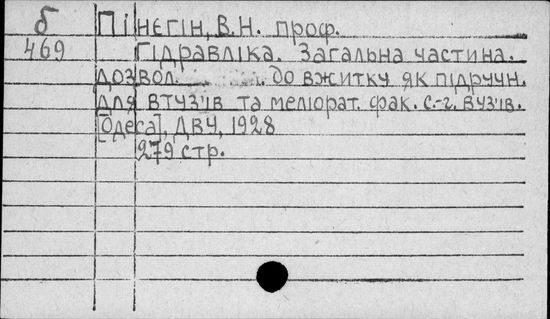 б Пінєгін, В.Н. проф.
469 Гідравліка. Загальна частина.
Дозвол. до вжитку як підручн.
для втузів та меліорат. фак. с.-г. вузів.
[Одеса], ДВУ, 1928
279 стр.